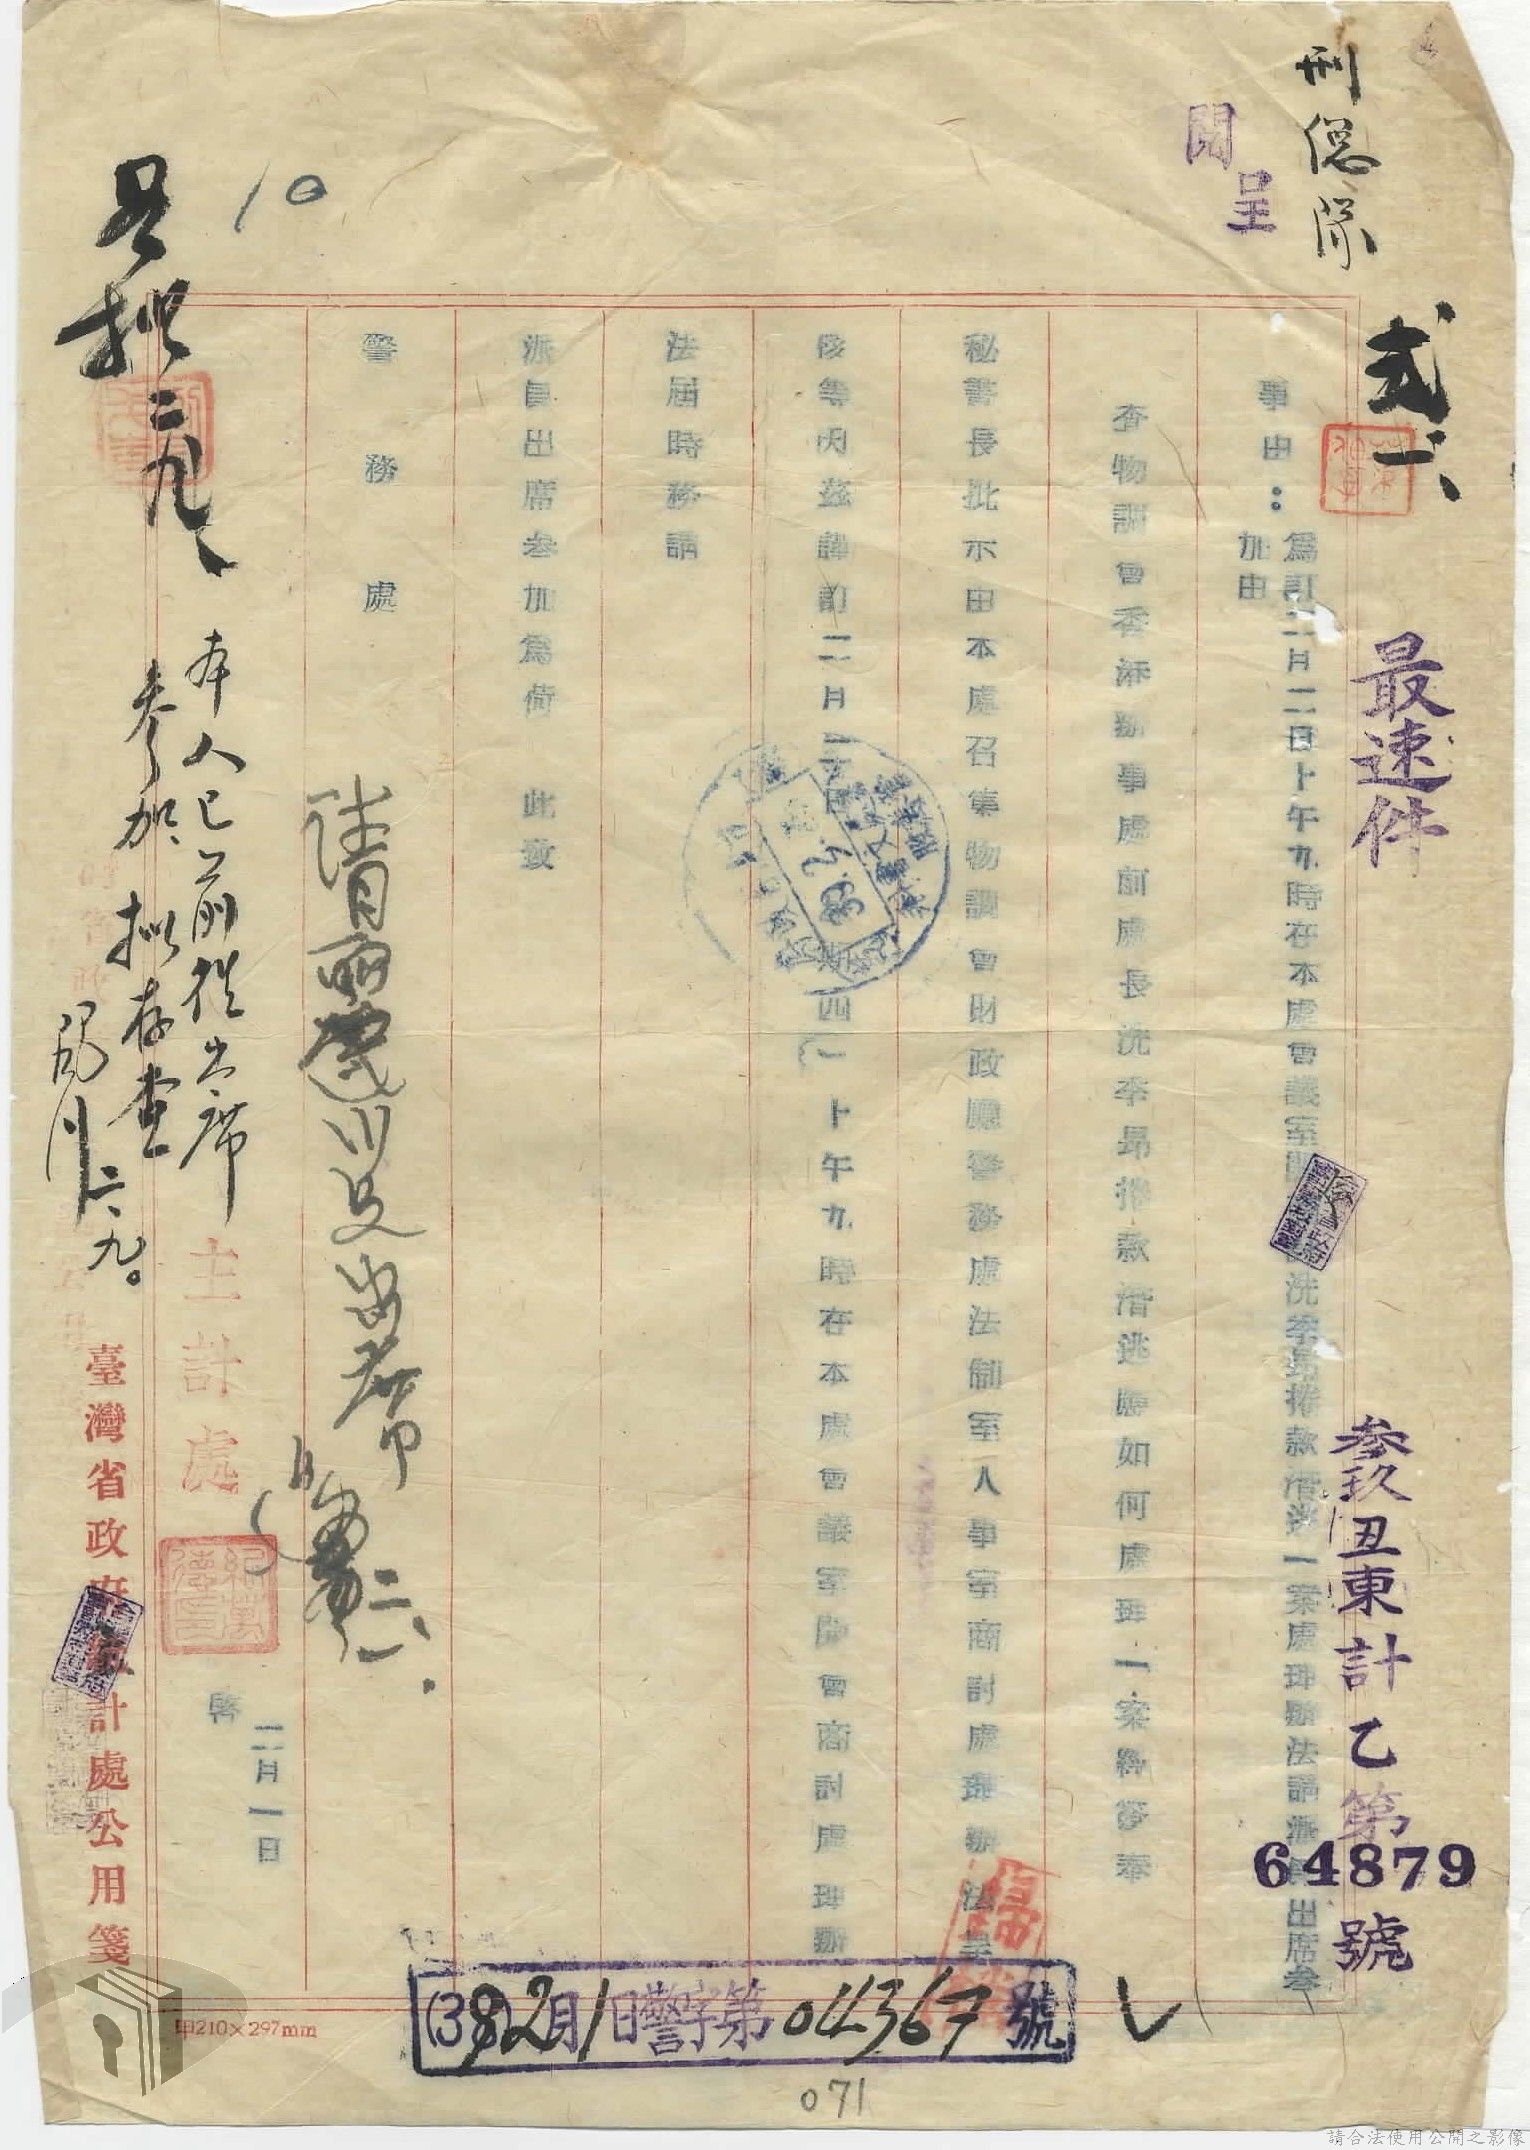 刑總隊
呈
閱
弍一、
最速件
參玖丑東計乙第
64879
號
事由：
為訂二月二日上午九時在本處會議室
洗季昴捲款潛逃一案處理辦法請派
出席叁
加由
查物調會香港辦事處前處長洗季昴捲款潛逃應如何處理一案經簽奉
秘書長批示由本處召集物調會財政廳警務處法制室人事室商討處理辦法呈
核等因茲謹訂二月二日
四）上午九時在本處會議室開會商討處理辦
法屆時務請
派員出席參加為荷　此致
警務處
出席
主計處
啓
二月一日
10
呈批
二、九、
本人已前往出席
參加、擬存查
二、九。
臺灣省政府
計處公用箋
甲210×297mm
(39)2月1日警字第04367號
071
請合法使用公開之影像